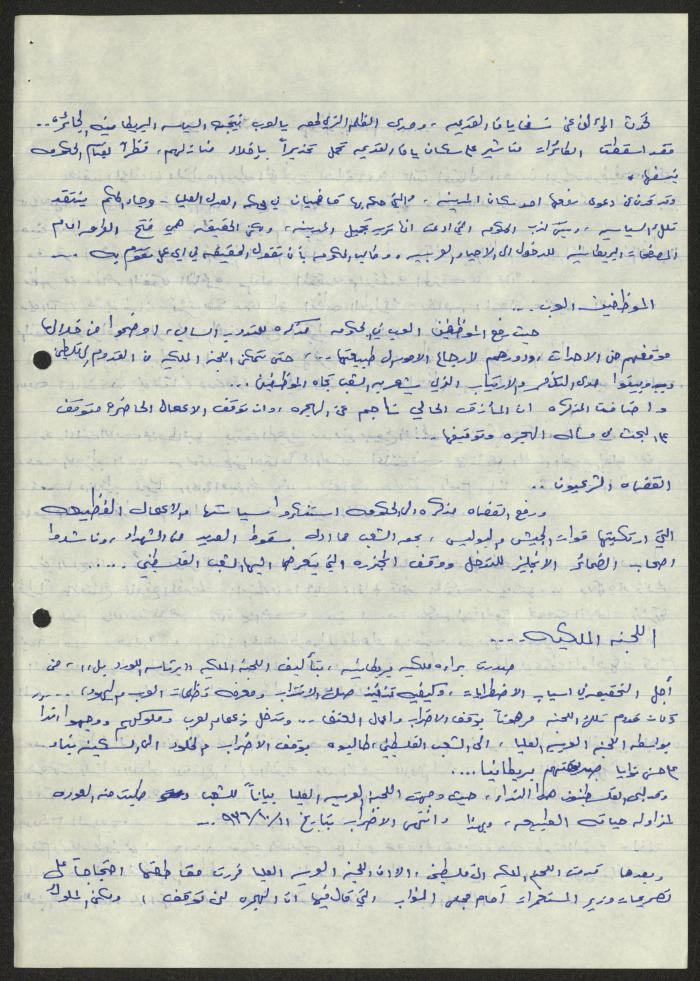 تحدث الوالي عن نسف يافا القديمه، ومدى الظلم الذي لحق بالعرب نتيجة السياسه البريطانيه الجائره..
فقد اسقطت الطائرات مناشير على سكان يافا القديمه تحمل تحذيراً بإخلاء منازلهم، نظراً لقيام الحكومه
بنسفها
وقد تحدث دعوى رفعها احد سكان المدينه، والتي حكم بها قاضيان في محكمة العدل العليا - وجاء الحكم ينتقد
تلك السياسه، ويبين كذب الحكومه التي ادعت انها تريد تجميل المدينه، ولكن الحقيقه هي فتح الطرق امام
المصفحات البريطانيه للدخول الى الاحياء العربيه، وطالب الحكومه بأن تقول الحقيقه في اي عمل تقوم به ...
الموظفين العرب ...
حيث رفع الموظفين العرب في الحكومه مذكره للمندوب السامي، اوضحوا من خلالها
موقفهم من الاحداث، ودورهم لارجاع الامور الى طبيعتها ...، حتى تتمكن اللجنه الملكيه من القدوم الى فلسطين
مدى التذمر والارتياب الذي يشعر به الشعب تجاه الموظفين ...
واضافت المذكره ان المأزق الحالي ناجم عن الهجره، وان توقف الاعمال الحاضره متوقف
على البحث في مسألة الهجره وتوقيفها..
القضاه الشرعيون ..
ورفع القضاه مذكره الى الحكومه استنكروا سياستها والاعمال الفظيعه
التي ارتكبتها قوات الجيش والبوليس، بحق الشعب مما ادى سقوط العديد من الشهداء، وناشدوا
اصحاب الضمائر الانجليز للتدخل ووقف المجزره التي يتعرض اليها الشعب الفلسطيني ....
اللجنه الملكيه ....
صدرت براءه ملكيه بريطانيه، بتأليف اللجنه الملكيه "برئاسه اللورد بيل"، من
أجل التحقيق في اسباب الاضطرابات، وكيفية تنفيذ صك الانتداب ومعرفة تظلمات العرب واليهود، ....
كان قدوم تلك اللجنه مرهوناً بوقف الاضراب واعمال العنف .. وتدخل زعماء العرب وملوكهم ووجهوا نداءا
بواسطه اللجنه العربيه العليا، الى الشعب الفلسطيني، طالبوه بوقف الاضراب والخلود الى السكينه بناء
على حسن نوايا صديقتهم بريطانيا....
وقد لبى الفلسطينيون هذا النداء، حيث وجهت اللجنه العربيه العليا بياناً للشعب طلبت منه العوده
لمزاولة حياته الطبيعيه، وبهذا وانتهى الاضراب بتاريخ ١١/١٠/٩٣٦ ...
وبعدها قدمت اللجنه الملكيه الى فلسطين، الا ان اللجنه العربيه العليا قررت مقاطعتها احتجاجاً على
تصريحات وزير المستعمرات أمام مجلس النواب التي قال فيها ان الهجره لن تتوقف، ولكن الملوك